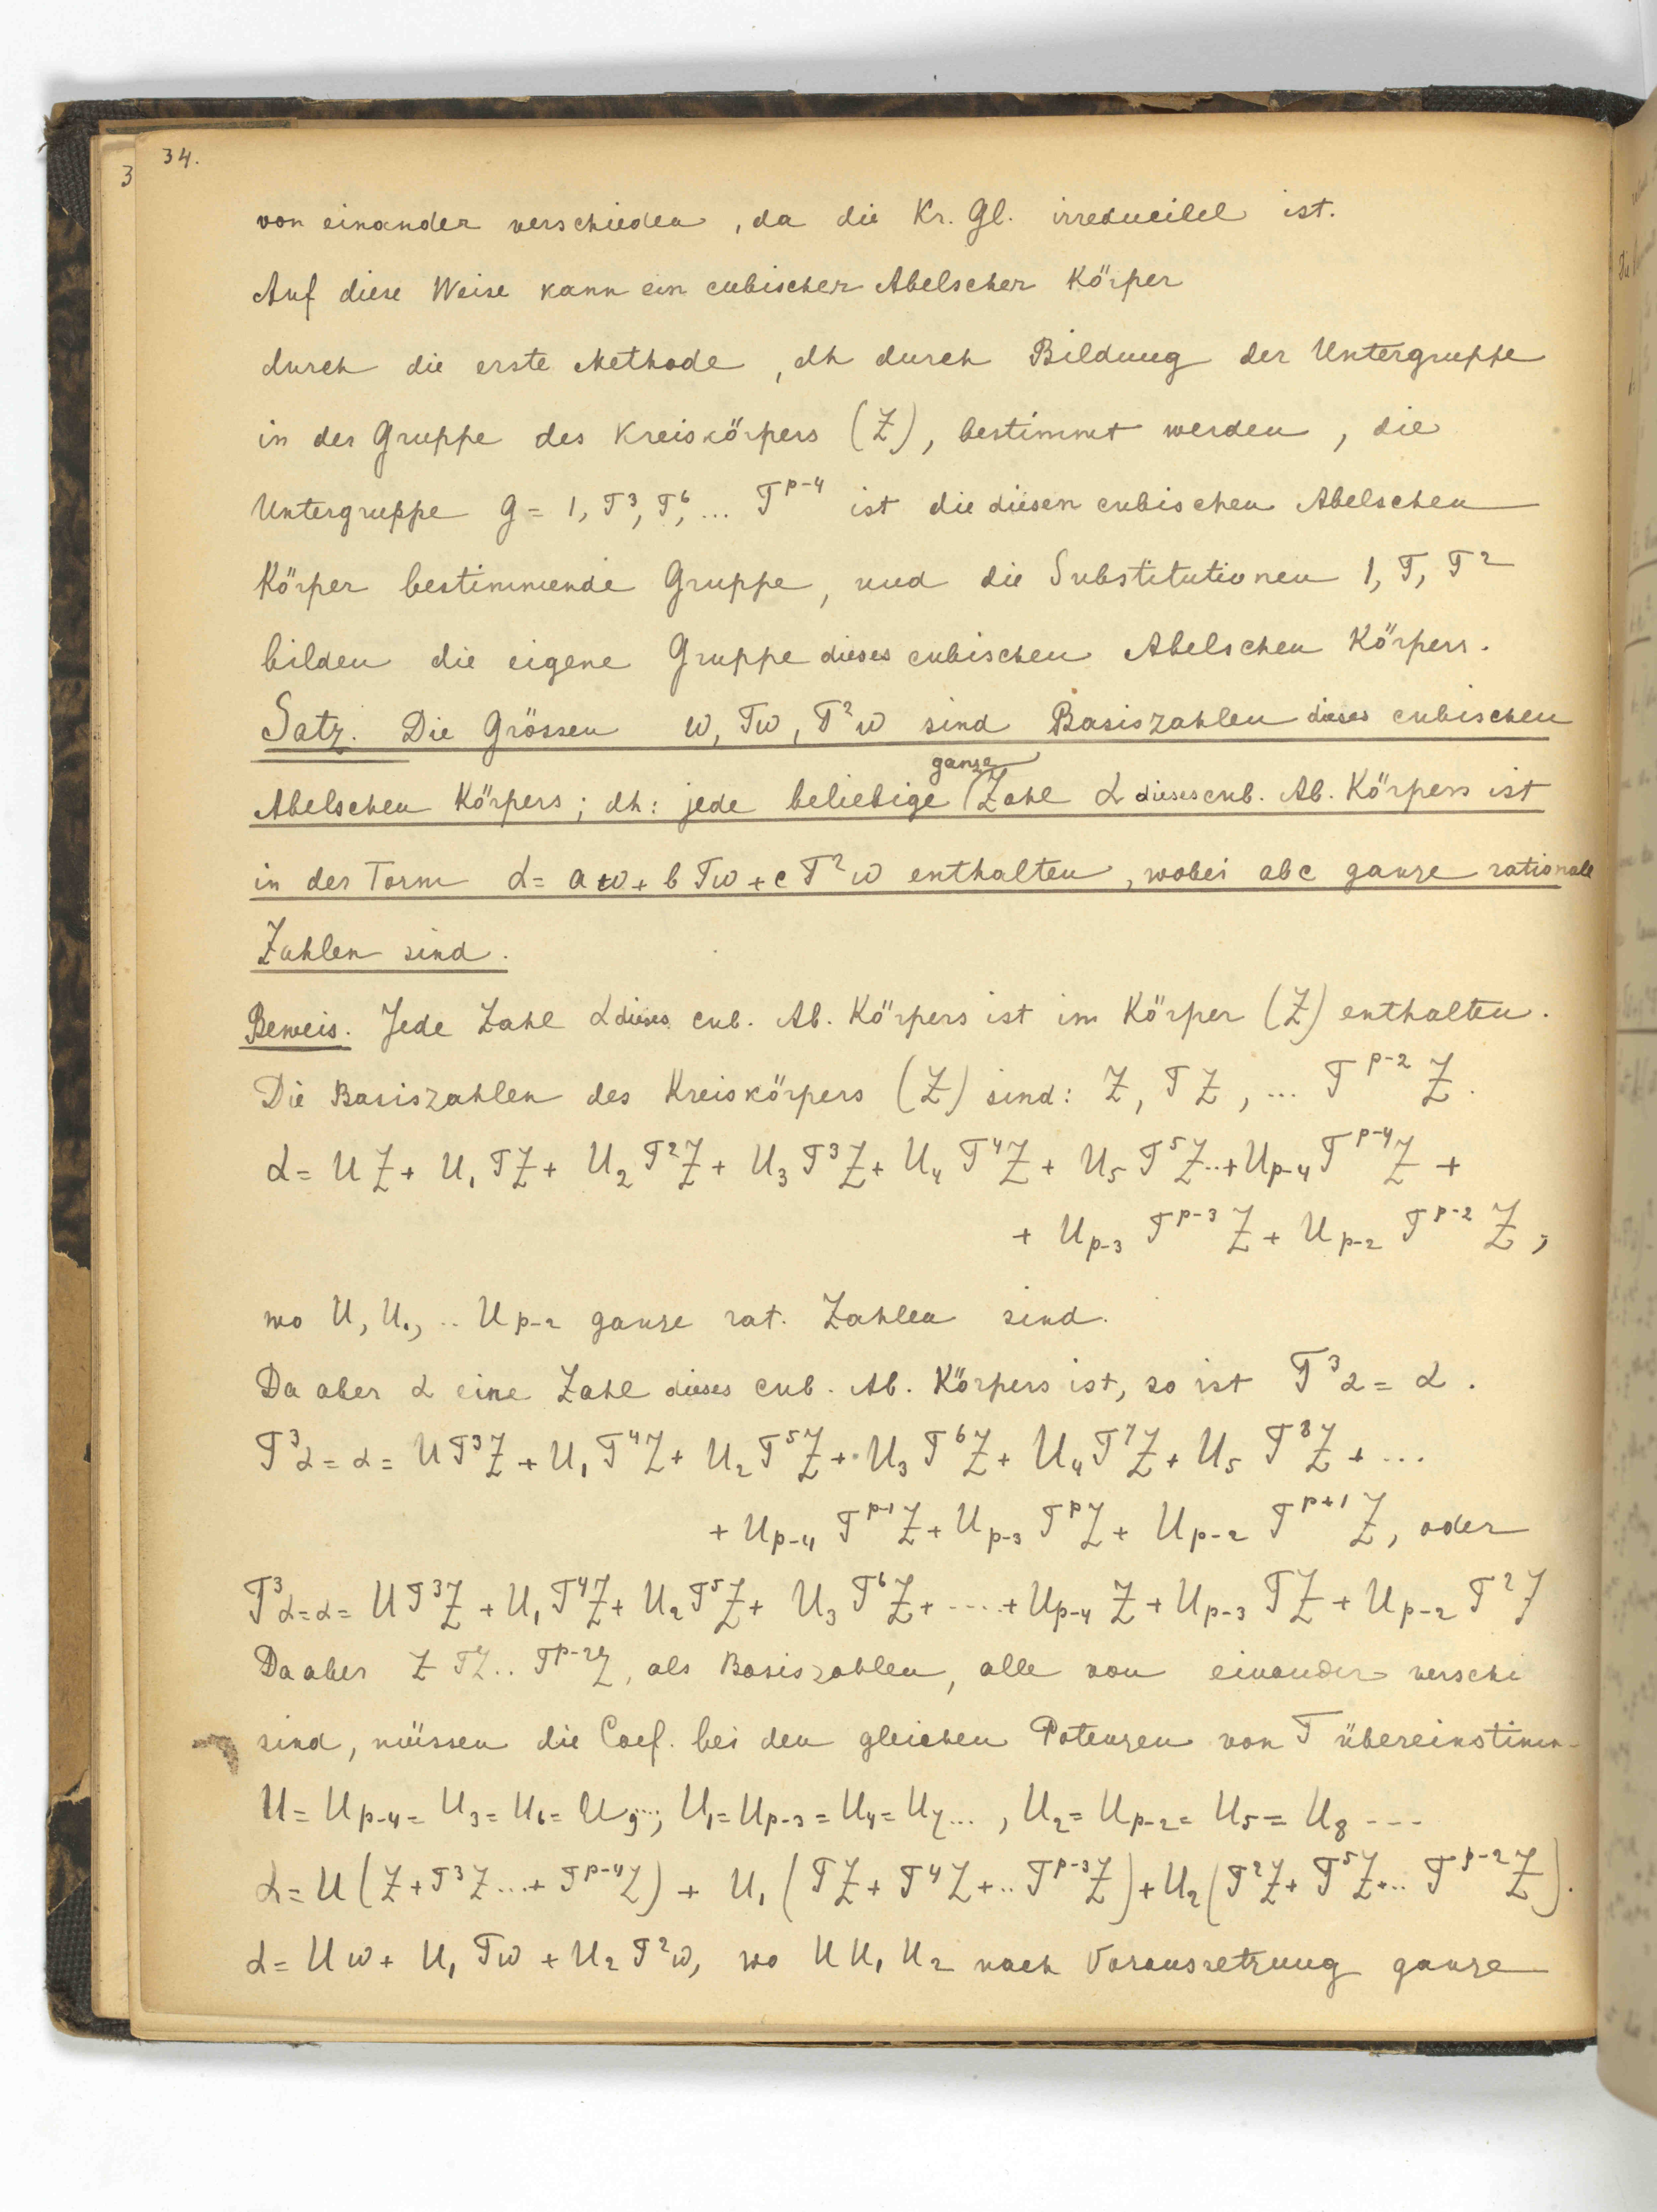 34.
3
von einander verschieden, da die Kr. Gl. irreducibel ist.
Auf diese Weise kann ein cubischer Abelscher Körper
durch die erste Methode, dh durch Bildung der Untergruppe
in der Gruppe des Kreiskörpers (Z), bestimmt werden, die
Untergruppe g = 1, T³, T⁶, ... T^{p-4} ist die diesen cubischen Abelschen
Körper bestimmende Gruppe, und die Substitutionen 1, T, T²
bilden die eigene Gruppe dieses cubischen Abelschen Körpers.
Satz. Die Grössen ω, Tω, T²ω sind Basiszahlen dieses cubischen
ganze
Abelschen Körpers; dh: jede beliebige Zahl α dieses cub. Ab. Körpers ist
in der Form α = aω + bTω + cT²ω enthalten, wobei abc ganze rationale
Zahlen sind.
Beweis. Jede Zahl α dieses cub. Ab. Körpers ist im Körper (Z) enthalten.
Die Basiszahlen des Kreiskörpers (Z) sind: Z, TZ, ... T^{p-2}Z.
α = UZ + U₁TZ + U₂T²Z + U₃T³Z + U₄T⁴Z + U₅T⁵Z..+ U_{p-4}T^{p-4}Z +
+ U_{p-3}T^{p-3}Z + U_{p-2}T^{p-2}Z,
wo U, U₁, .. U_{p-2} ganze rat. Zahlen sind.
Da aber α eine Zahl dieses cub. Ab. Körpers ist, so ist T³α = α.
T³α = α = UT³Z + U₁T⁴Z + U₂T⁵Z + U₃T⁶Z + U₄T⁷Z + U₅T⁸Z + ...
+ U_{p-4}T^{p-1}Z + U_{p-3}T^{p}Z + U_{p-2}T^{p+1}Z, oder
T³α = α = UT³Z + U₁T⁴Z + U₂T⁵Z + U₃T⁶Z + ..... + U_{p-4}Z + U_{p-3}TZ + U_{p-2}T²Z
Da aber Z TZ.. T^{p-2}Z, als Basiszahlen, alle von einander verschi
sind, müssen die Coef. bei den gleichen Potenzen von T übereinstimm-
U = U_{p-4} = U₃ = U₆ = U₉...; U₁ = U_{p-3} = U₄ = U₇..., U₂ = U_{p-2} = U₅ = U₈ ---
α = U(Z + T³Z...+ T^{p-4}Z) + U₁(TZ + T⁴Z +.. T^{p-3}Z) + U₂(T²Z + T⁵Z +.. T^{p-2}Z).
α = Uω + U₁Tω + U₂T²ω, wo U U₁ U₂ nach Voraussetzung ganze